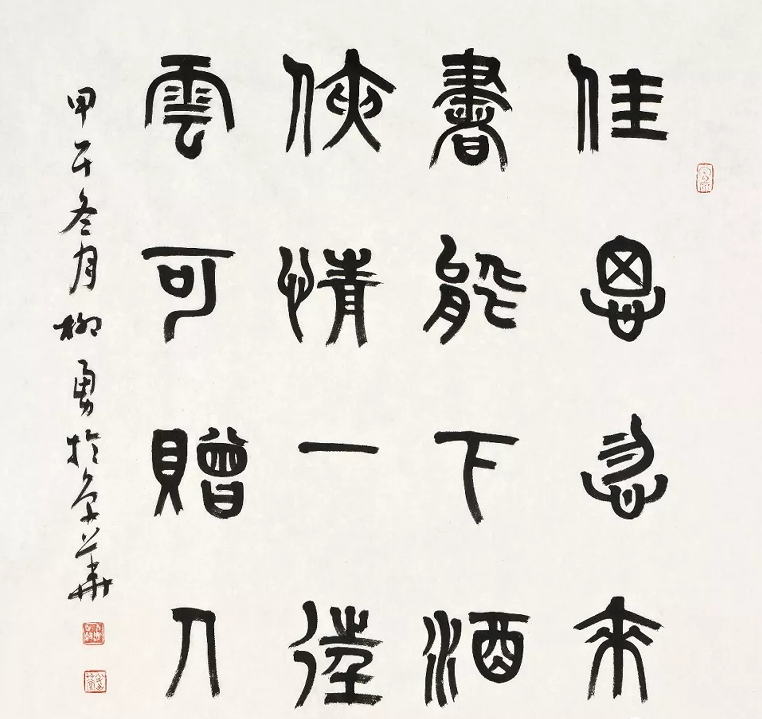 佳思忽來
書能下酒
俠情一往
雲可贈人
甲午冬月柳勇於京華